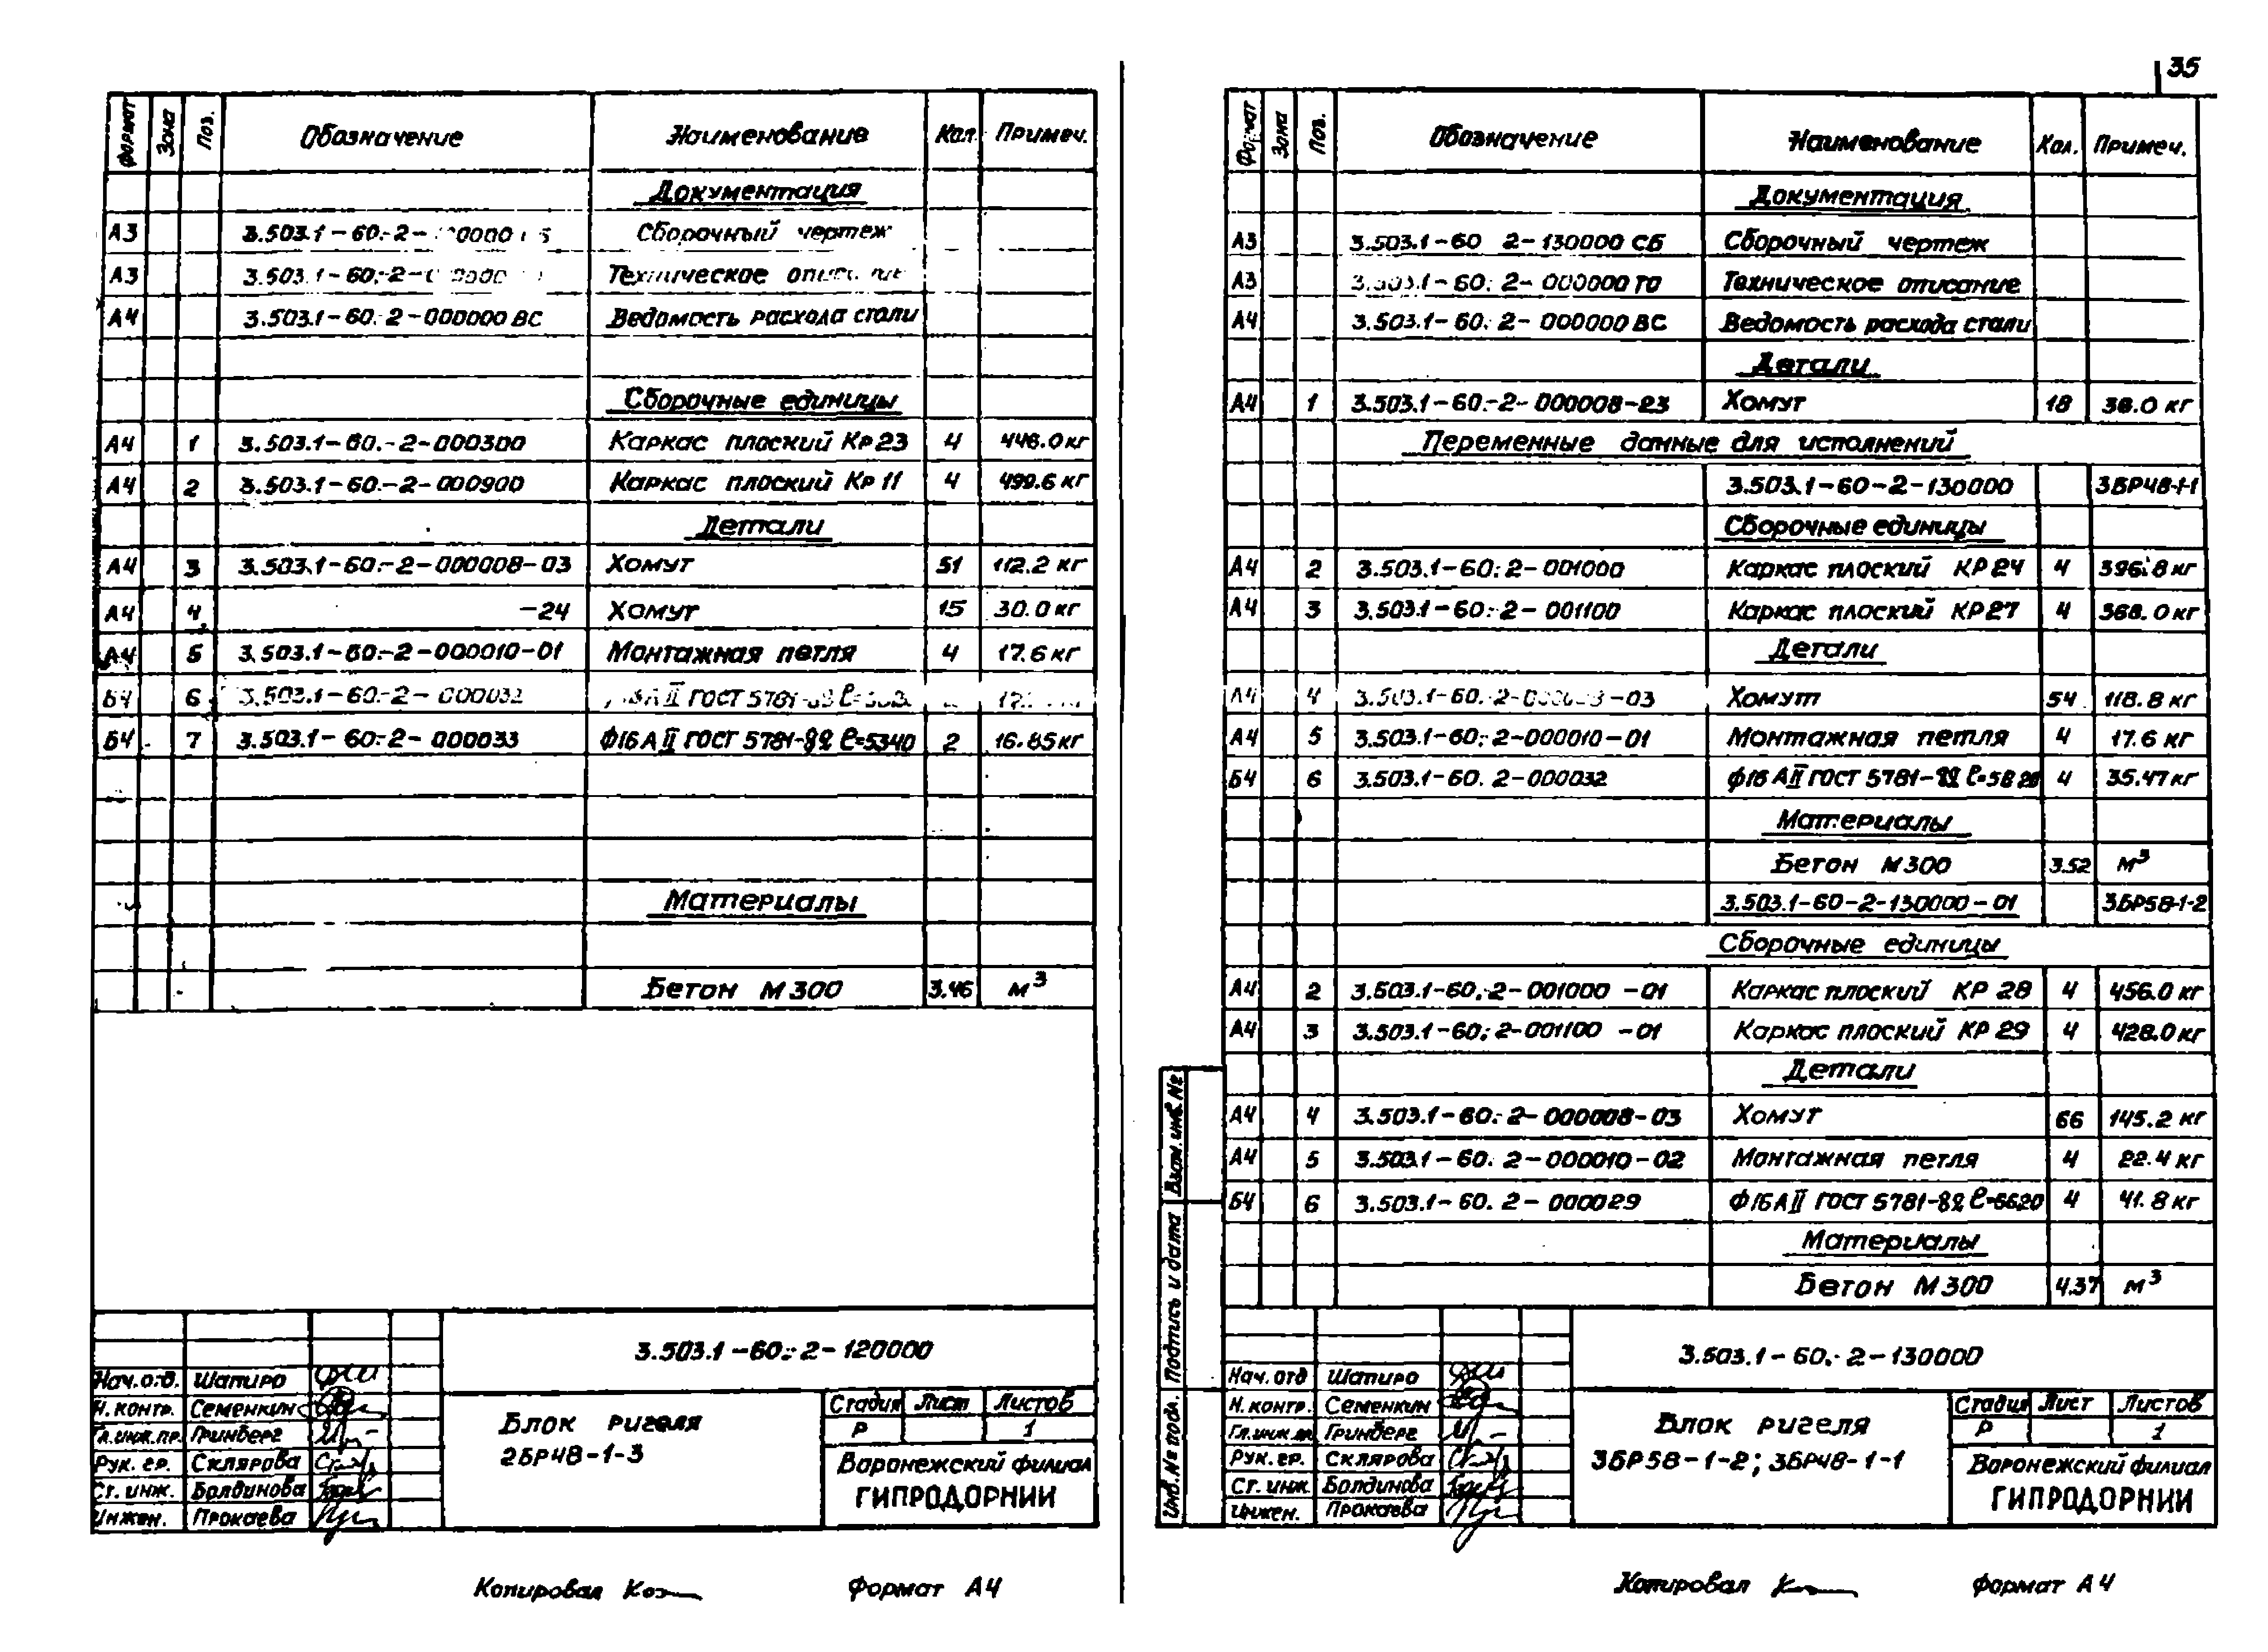 35
Формат Зона Поз. Обозначение Наименование Кол. Примеч.
Документация
А3 3.503.1-60.-2- Сборочный чертеж
А3 3.503.1-60.-2- Техническое
А4 3.503.1-60.-2-000000 ВС Ведомость расхода стали
Сборочные единицы
А4 1 3.503.1-60.-2-000300 Каркас плоский Кр 23 4 446.0 кг
А4 2 3.503.1-60.-2-000900 Каркас плоский Кр 11 4 499.6 кг
Детали
А4 3 3.503.1-60.-2-000008-03 Хомут 51 112.2 кг
А4 4 -24 Хомут 15 30.0 кг
А4 5 3.503.1-60.-2-000010-01 Монтажная петля 4 17.6 кг
Б4 6 3.503.1-60.-2-000032 ГОСТ 5781-
Б4 7 3.503.1-60.-2-000033 ф16 АII ГОСТ 5781-82 ℓ=5340 2 16.85 кг
Материалы
Бетон М 300 3.46 м³
3.503.1-60.-2-120000
Нач.отд. Шапиро
Н.контр. Семенкин
Гл.инж.пр. Гринберг
Рук. гр. Склярова
Ст. инж. Болдинова
Инжен. Прокаева
Блок ригеля
2БР48-1-3
Стадия Лист Листов
Р 1
Воронежский филиал
ГИПРОДОРНИИ
Копировал Формат А4
Формат Зона Поз. Обозначение Наименование Кол. Примеч.
Документация
А3 3.503.1-60 2-130000 СБ Сборочный чертеж
А3 3.503.1-60. 2-000000 ТО Техническое описание
А4 3.503.1-60. 2-000000 ВС Ведомость расхода стали
Детали
А4 1 3.503.1-60.-2-000008-23 Хомут 18 36.0 кг
Переменные данные для исполнений
3.503.1-60-2-130000 3БР48-1-1
Сборочные единицы
А4 2 3.503.1-60.-2-001000 Каркас плоский КР 24 4 396.8 кг
А4 3 3.503.1-60.-2-001100 Каркас плоский КР 27 4 368.0 кг
Детали
А4 4 3.503.1-60.-2-000008-03 Хомут 54 118.8 кг
А4 5 3.503.1-60.-2-000010-01 Монтажная петля 4 17.6 кг
Б4 6 3.503.1-60. 2-000032 ф16 АII ГОСТ 5781-82 ℓ=5820 4 35.47 кг
Материалы
Бетон М 300 3.52 м³
3.503.1-60-2-130000-01 3БР58-1-2
Сборочные единицы
А4 2 3.503.1-60.-2-001000 -01 Каркас плоский КР 28 4 456.0 кг
А4 3 3.503.1-60.-2-001100 -01 Каркас плоский КР 29 4 428.0 кг
Детали
А4 4 3.503.1-60.-2-000008-03 Хомут 66 145.2 кг
А4 5 3.503.1-60. 2-000010-02 Монтажная петля 4 22.4 кг
Б4 6 3.503.1-60. 2-000029 Ф16 АII ГОСТ 5781-82 ℓ=6620 4 41.8 кг
Материалы
Бетон М 300 4.37 м³
Взам. инв. №
Подпись и дата
Инв. № подл.
3.503.1-60.-2-130000
Нач. отд Шапиро
Н.контр. Семенкин
Гл.инж.пр Гринберг
Рук.гр. Склярова
Ст. инж. Болдинова
Инжен. Прокаева
Блок ригеля
3БР58-1-2; 3БР48-1-1
Стадия Лист Листов
Р 1
Воронежский филиал
ГИПРОДОРНИИ
Копировал Формат А4